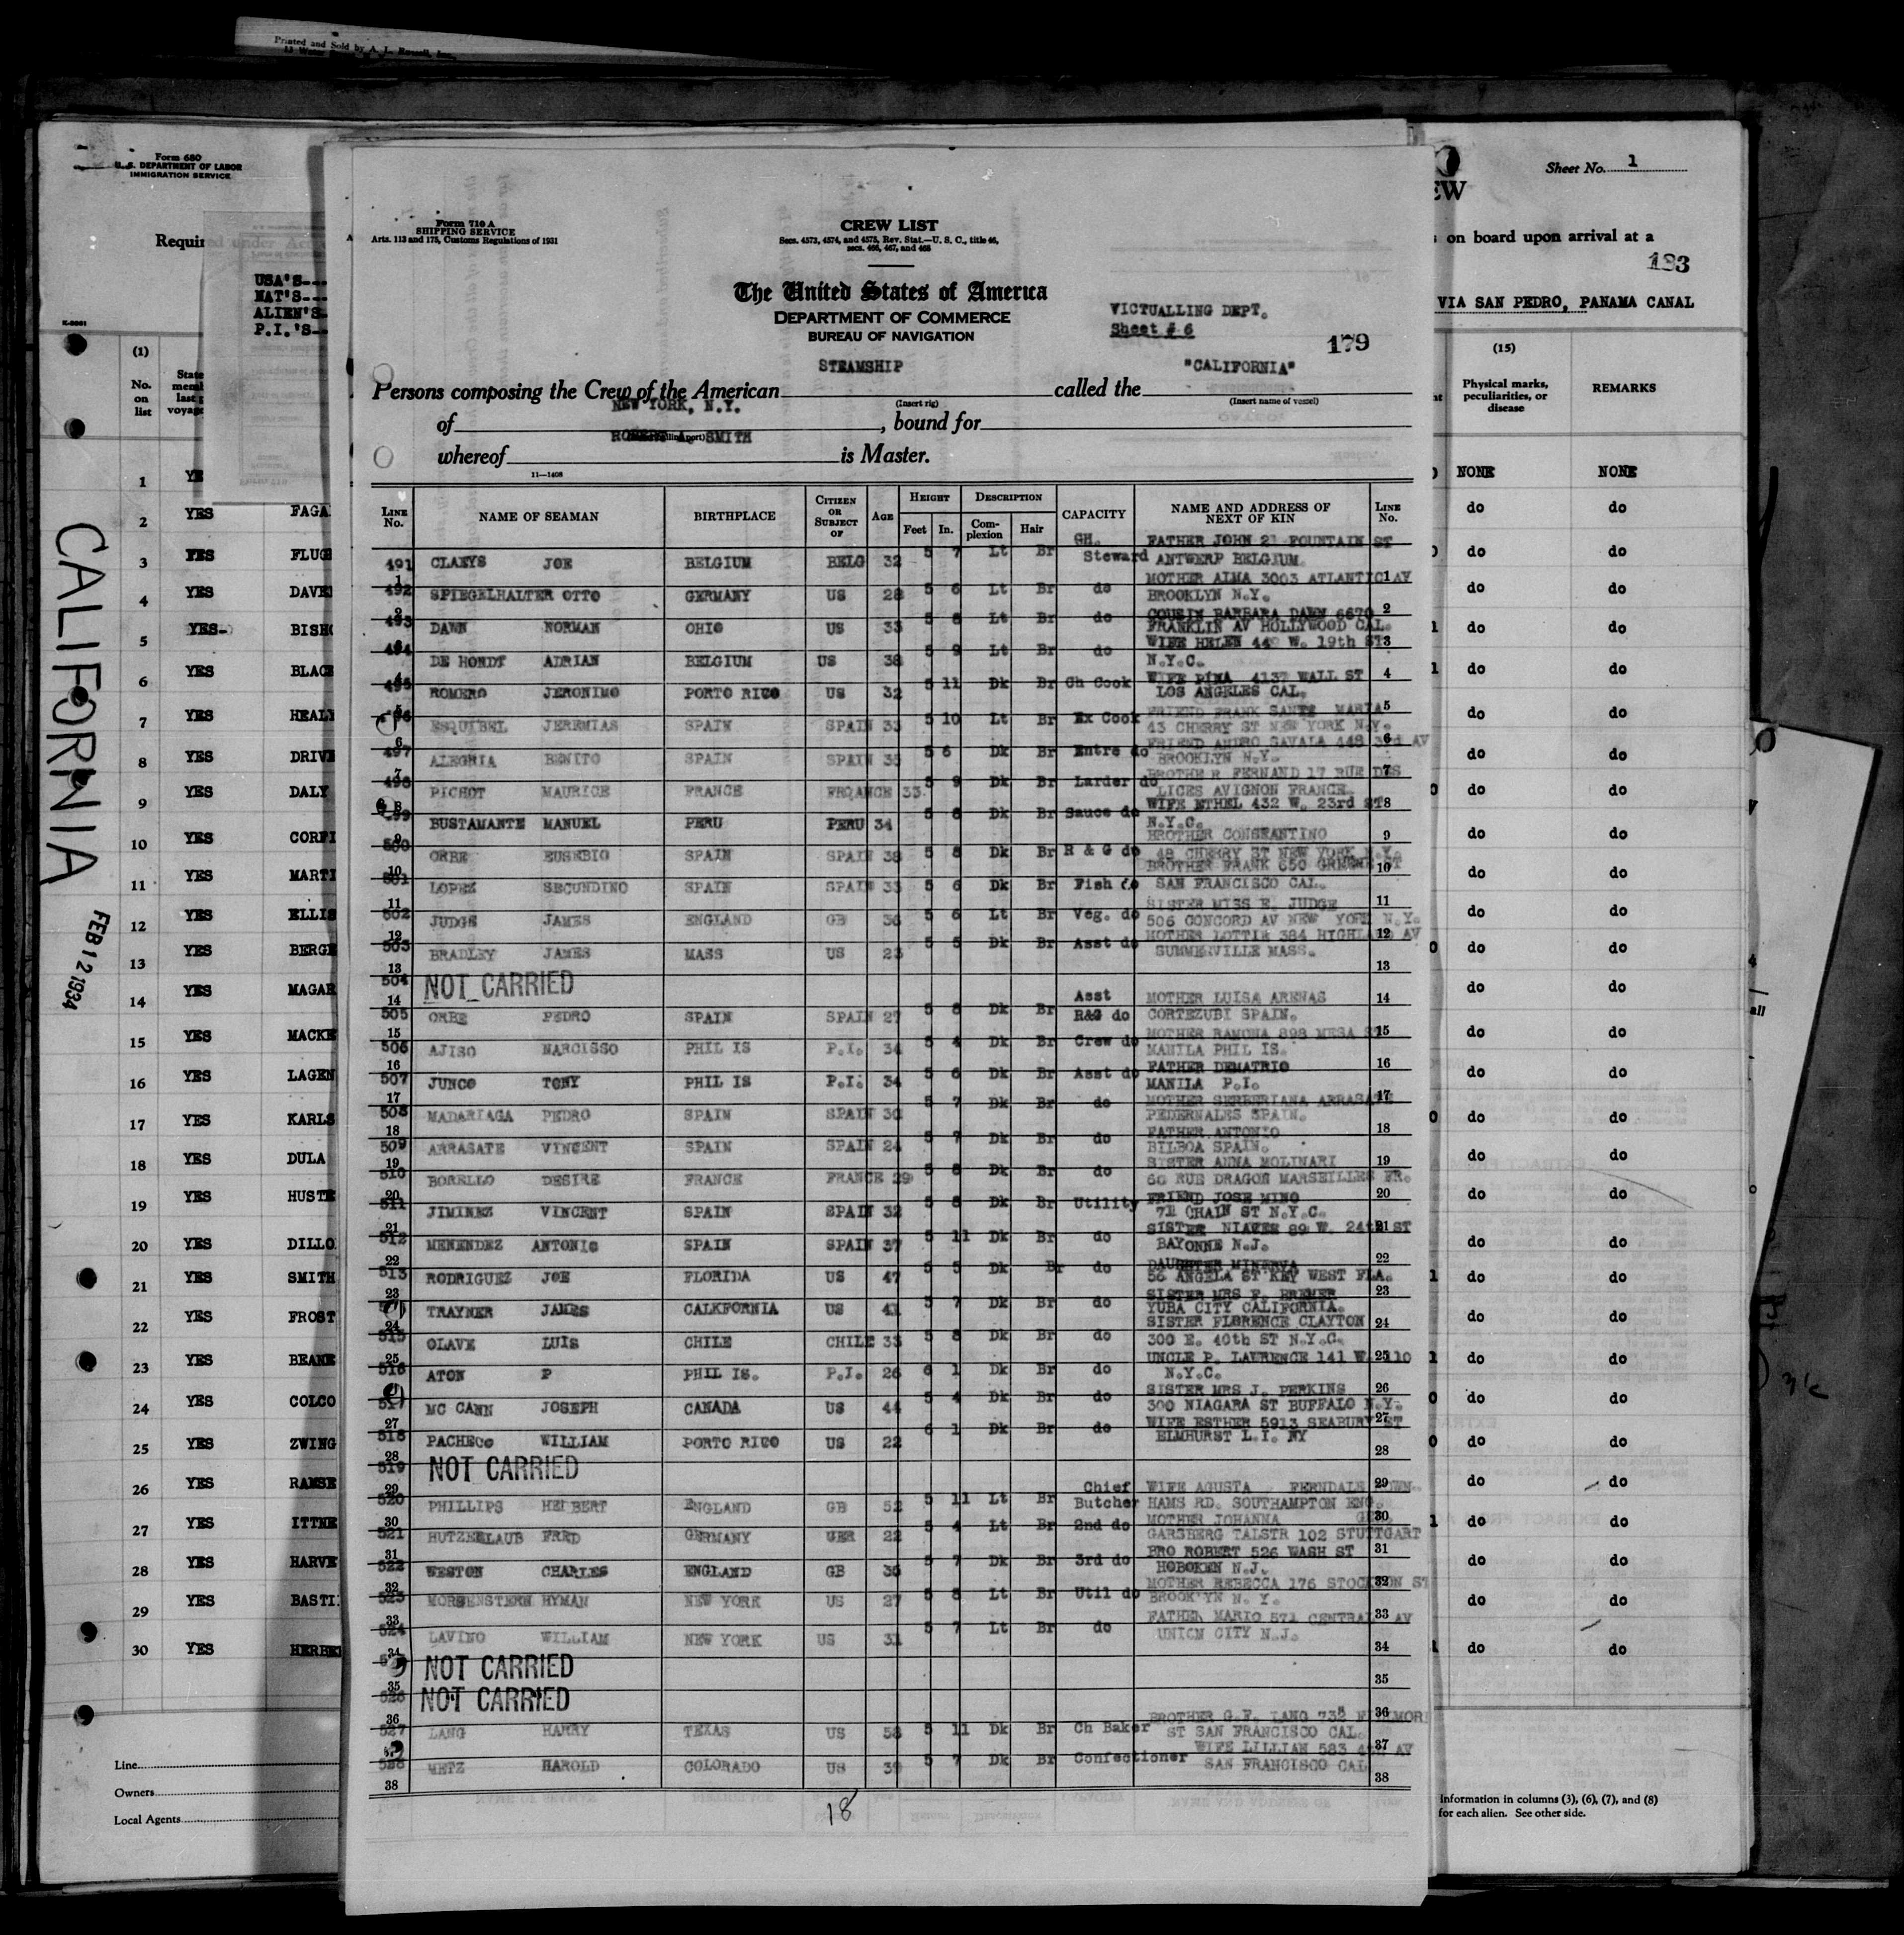 Printed and Sold by A. L. Russell, Inc.,
Form 680
U. S. DEPARTMENT OF LABOR
IMMIGRATION SERVICE
USA'S---
NAT'S---
ALIEN'S-
P.I.'S--
(1)
No.
on
list
1 YE
2 YES FAGA
3 YES FLUG
4 YES DAVE
5 YES- BISH
6 YES BLACK
7 YES HEALY
8 YES DRIVE
9 YES DALY
10 YES CORFI
11 YES MARTI
12 YES ELLIS
13 YES BERGE
14 YES MAGAR
15 YES MACKE
16 YES LAGEN
17 YES KARLS
18 YES DULA
19 YES HUSTE
20 YES DILLO
21 YES SMITH
22 YES FROST
23 YES BEANE
24 YES COLCO
25 YES ZWING
26 YES RAMSE
27 YES ITTNE
28 YES HARVE
29 YES BASTI
30 YES HERBE
Line
Owners
Local Agents
CALIFORNIA
FEB 12 1934
Form 710 A
SHIPPING SERVICE
Arts. 113 and 175, Customs Regulations of 1931
CREW LIST
Secs. 4573, 4574, and 4575, Rev. Stat.—U. S. C., title 46,
secs. 466, 467, and 468
The United States of America
DEPARTMENT OF COMMERCE
BUREAU OF NAVIGATION
VICTUALLING DEPT.
Sheet # 6
179
STEAMSHIP "CALIFORNIA"
Persons composing the Crew of the American called the
(Insert rig) (Insert name of vessel)
NEW YORK, N.Y.
of , bound for
ROBERT A. SMITH
whereof is Master.
11—1408
LINE No. NAME OF SEAMAN BIRTHPLACE CITIZEN OR SUBJECT OF AGE HEIGHT Feet In. DESCRIPTION Complexion Hair CAPACITY NAME AND ADDRESS OF NEXT OF KIN LINE No.
491 CLAEYS JOE BELGIUM BELG 32 5 7 Lt Br CH. Steward FATHER JOHN 21 FOUNTAIN ST
ANTWERP BELGIUM. 1
492 SPIEGELHALTER OTTO GERMANY US 28 5 6 Lt Br do MOTHER ALMA 3003 ATLANTIC AV
BROOKLYN N.Y. 2
493 DAWN NORMAN OHIO US 33 5 8 Lt Br do COUSIN BARBARA DAWN 6670
FRANKLIN AV HOLLYWOOD CAL. 3
494 DE HONDT ADRIAN BELGIUM US 38 5 9 Lt Br do WIFE HELEN 440 W. 19th ST
N.Y.C. 4
495 ROMERO JERONIMO PORTO RICO US 32 5 11 Dk Br Ch Cook WIFE PINA 4137 WALL ST
LOS ANGELES CAL. 5
496 ESQUIBEL JEREMIAS SPAIN SPAIN 33 5 10 Lt Br Ex Cook FRIEND FRANK SANTE MARIA
43 CHERRY ST NEW YORK N.Y. 6
497 ALEGRIA BENITO SPAIN SPAIN 35 5 6 Dk Br Entre do FRIEND ANDRO SAVALA 448 3rd AV
BROOKLYN N.Y. 7
498 PICHOT MAURICE FRANCE FRQANCE 33 5 9 Dk Br Larder do BROTHER FERNAND 17 RUE DES
LICES AVIGNON FRANCE. 8
499 BUSTAMANTE MANUEL PERU PERU 34 5 6 Dk Br Sauce do WIFE ETHEL 432 W. 23rd ST
N.Y.C. 9
500 ORBE EUSEBIO SPAIN SPAIN 38 5 8 Dk Br R & G do BROTHER CONSTANTINO
48 CHERRY ST NEW YORK N.Y. 10
501 LOPEZ SECUNDINO SPAIN SPAIN 33 5 6 Dk Br Fish do BROTHER FRANK 650 ST
SAN FRANCISCO CAL. 11
502 JUDGE JAMES ENGLAND GB 36 5 6 Lt Br Veg. do SISTER MISS E. JUDGE
506 CONCORD AV NEW YORK N.Y. 12
503 BRADLEY JAMES MASS US 23 5 5 Dk Br Asst do MOTHER LOTTIE 384 HIGHLAND AV
SUMMERVILLE MASS. 13
504 NOT CARRIED 14
505 ORBE PEDRO SPAIN SPAIN 27 5 8 Dk Br Asst R&G do MOTHER LUISA ARENAS
CORTEZUBI SPAIN. 15
506 AJISO NARCISSO PHIL IS P.I. 34 5 4 Dk Br Crew do MOTHER RAMONA 898 MESA ST
MANILA PHIL IS. 16
507 JUNCO TONY PHIL IS P.I. 34 5 6 Dk Br Asst do FATHER DEMATRIO
MANILA P.I. 17
508 MADARIAGA PEDRO SPAIN SPAIN 30 5 7 Dk Br do MOTHER SERBERIANA ARRASATE
PEDERNALES SPAIN. 18
509 ARRASATE VINCENT SPAIN SPAIN 24 5 7 Dk Br do FATHER ANTONIO
BILBOA SPAIN. 19
510 BORELLO DESIRE FRANCE FRANCE 29 5 8 Dk Br do SISTER ANNA MOLINARI
60 RUE DRAGON MARSEILLES FR. 20
511 JIMINEZ VINCENT SPAIN SPAIN 32 5 8 Dk Br Utility FRIEND JOSE MINO
CHAIN ST N.Y.C. 21
512 MENENDEZ ANTONIO SPAIN SPAIN 37 5 11 Dk Br do SISTER NIAVES 89 W. 24th ST
BAYONNE N.J. 22
513 RODRIGUEZ JOE FLORIDA US 47 5 5 Dk Br do DAUGHTER MINERVA
56 ANGELA ST KEY WEST FLA. 23
TRAYNER JAMES CALKFORNIA US 41 5 7 Dk Br do SISTER MRS F. BREMER
YUBA CITY CALIFORNIA. 24
515 OLAVE LUIS CHILE CHILE 33 5 8 Dk Br do SISTER FLORENCE CLAYTON
300 E. 40th ST N.Y.C. 25
516 ATON P PHIL IS. P.I. 26 6 1 Dk Br do UNCLE P. LAWRENCE 141 W. 110
N.Y.C. 26
517 MC CANN JOSEPH CANADA US 44 5 4 Dk Br do SISTER MRS J. PERKINS
300 NIAGARA ST BUFFALO N.Y. 27
518 PACHECO WILLIAM PORTO RICO US 22 6 1 Dk Br do WIFE ESTHER 5913 SEABURY ST
ELMHURST L.I. NY 28
519 NOT CARRIED 29
520 PHILLIPS HERBERT ENGLAND GB 52 5 11 Lt Br Chief Butcher WIFE AGUSTA FERNDALE
HAMS RD. SOUTHAMPTON ENG. 30
521 HUTZENLAUB FRED GERMANY GER 22 5 4 Lt Br 2nd do MOTHER JOHANNA
GARSBERG TALSTR 102 STUTTGART 31
522 WESTON CHARLES ENGLAND GB 36 5 7 Dk Br 3rd do BRO ROBERT 526 WASH ST
HOBOKEN N.J. 32
523 MORGENSTERN HYMAN NEW YORK US 27 5 8 Lt Br Util do MOTHER REBECCA 176 STOCKTON ST
BROOKLYN N. Y. 33
524 LAVINO WILLIAM NEW YORK US 31 5 7 Lt Br do FATHER MARIO 571 CENTRAL AV
UNION CITY N.J. 34
NOT CARRIED 35
526 NOT CARRIED 36
527 LANG HARRY TEXAS US 58 5 11 Dk Br Ch Baker BROTHER G.F. LANG 735 FILLMORE
ST SAN FRANCISCO CAL. 37
528 METZ HAROLD COLORADO US 39 5 7 Dk Br Confectioner WIFE LILLIAN 583 4th AV
SAN FRANCISCO CAL 38
18
Sheet No. 1
EW
on board upon arrival at a
183
VIA SAN PEDRO, PANAMA CANAL
(15)
Physical marks,
peculiarities, or
disease
REMARKS
NONE NONE
do do
do do
do do
do do
do do
do do
do do
do do
do do
do do
do do
do do
do do
do do
do do
do do
do do
do do
do do
do do
do do
do do
do do
do do
do do
do do
do do
do do
do do
information in columns (3), (6), (7), and (8)
for each alien. See other side.